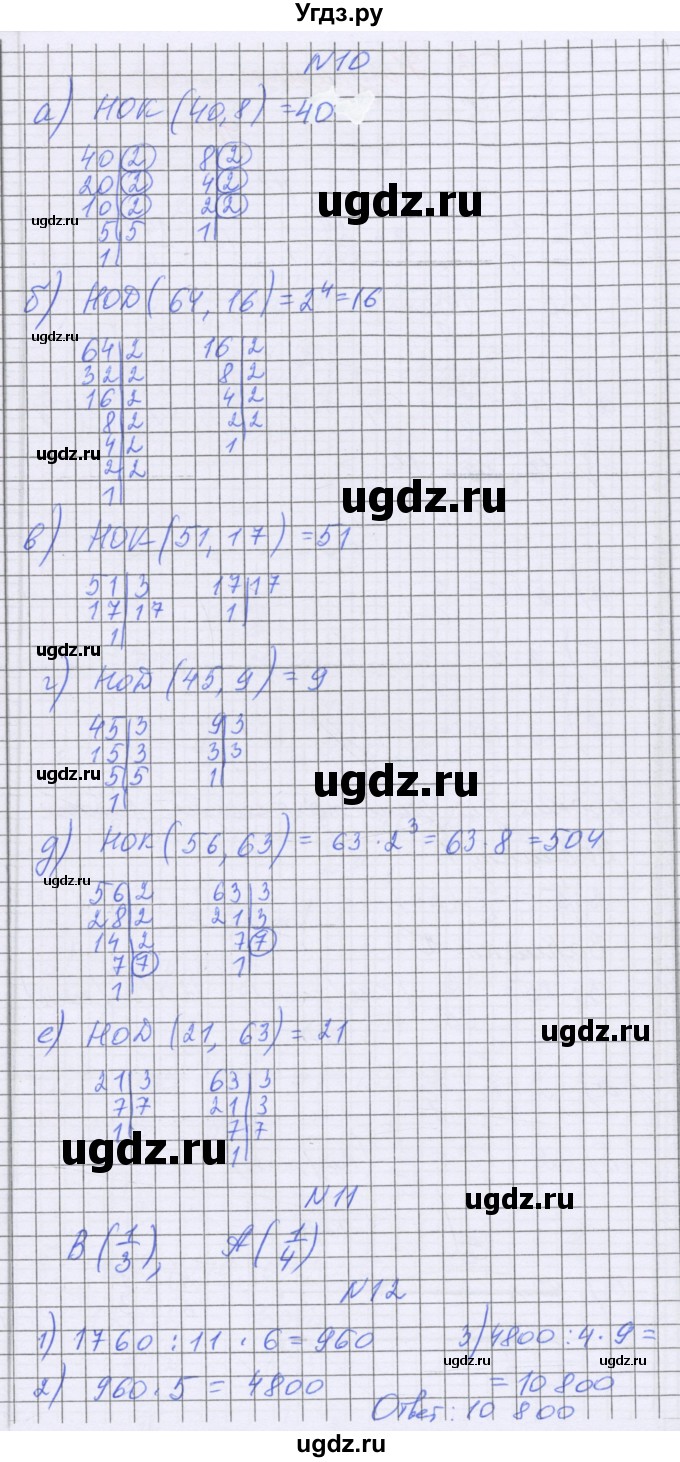 Угдз.ру
N10
а) НОК (40,8) = 40
40 | 2 8 | 2
20 | 2 4 | 2
10 | 2 2 | 2
5 | 5 1 |
1 |
ugdz.ru
ugdz.ru
б) НОD (64, 16) = 2⁴ = 16
ugdz.ru
64 | 2 16 | 2
32 | 2 8 | 2
16 | 2 4 | 2
8 | 2 2 | 2
4 | 2 1
2 | 2
1 |
ugdz.ru
ugdz.ru
в) НОК (51, 17) = 51
51 | 3 17 | 17
17 | 17 1 |
1 |
ugdz.ru
г) НОD (45, 9) = 9
45 | 3 9 | 3
15 | 3 3 | 3
5 | 5 1 |
1 |
ugdz.ru
ugdz.ru
д) НОК (56, 63) = 63 · 2³ = 63 · 8 = 504
ugdz.ru
56 | 2 63 | 3
28 | 2 21 | 3
14 | 2 7 | 7
7 | 7 1 |
1 |
е) НОD (21, 63) = 21
ugdz.ru
21 | 3 63 | 3
7 | 7 21 | 3
1 | 7 | 7
1 |
ugdz.ru
N11
ugdz.ru
B (1/3), A (1/4)
N12
1) 1760 : 11 · 6 = 960 3) 4800 : 4 · 9 =
ugdz.ru ugdz.ru
2) 960 · 5 = 4800 = 10 800
Ответ: 10 800
ugdz.ru